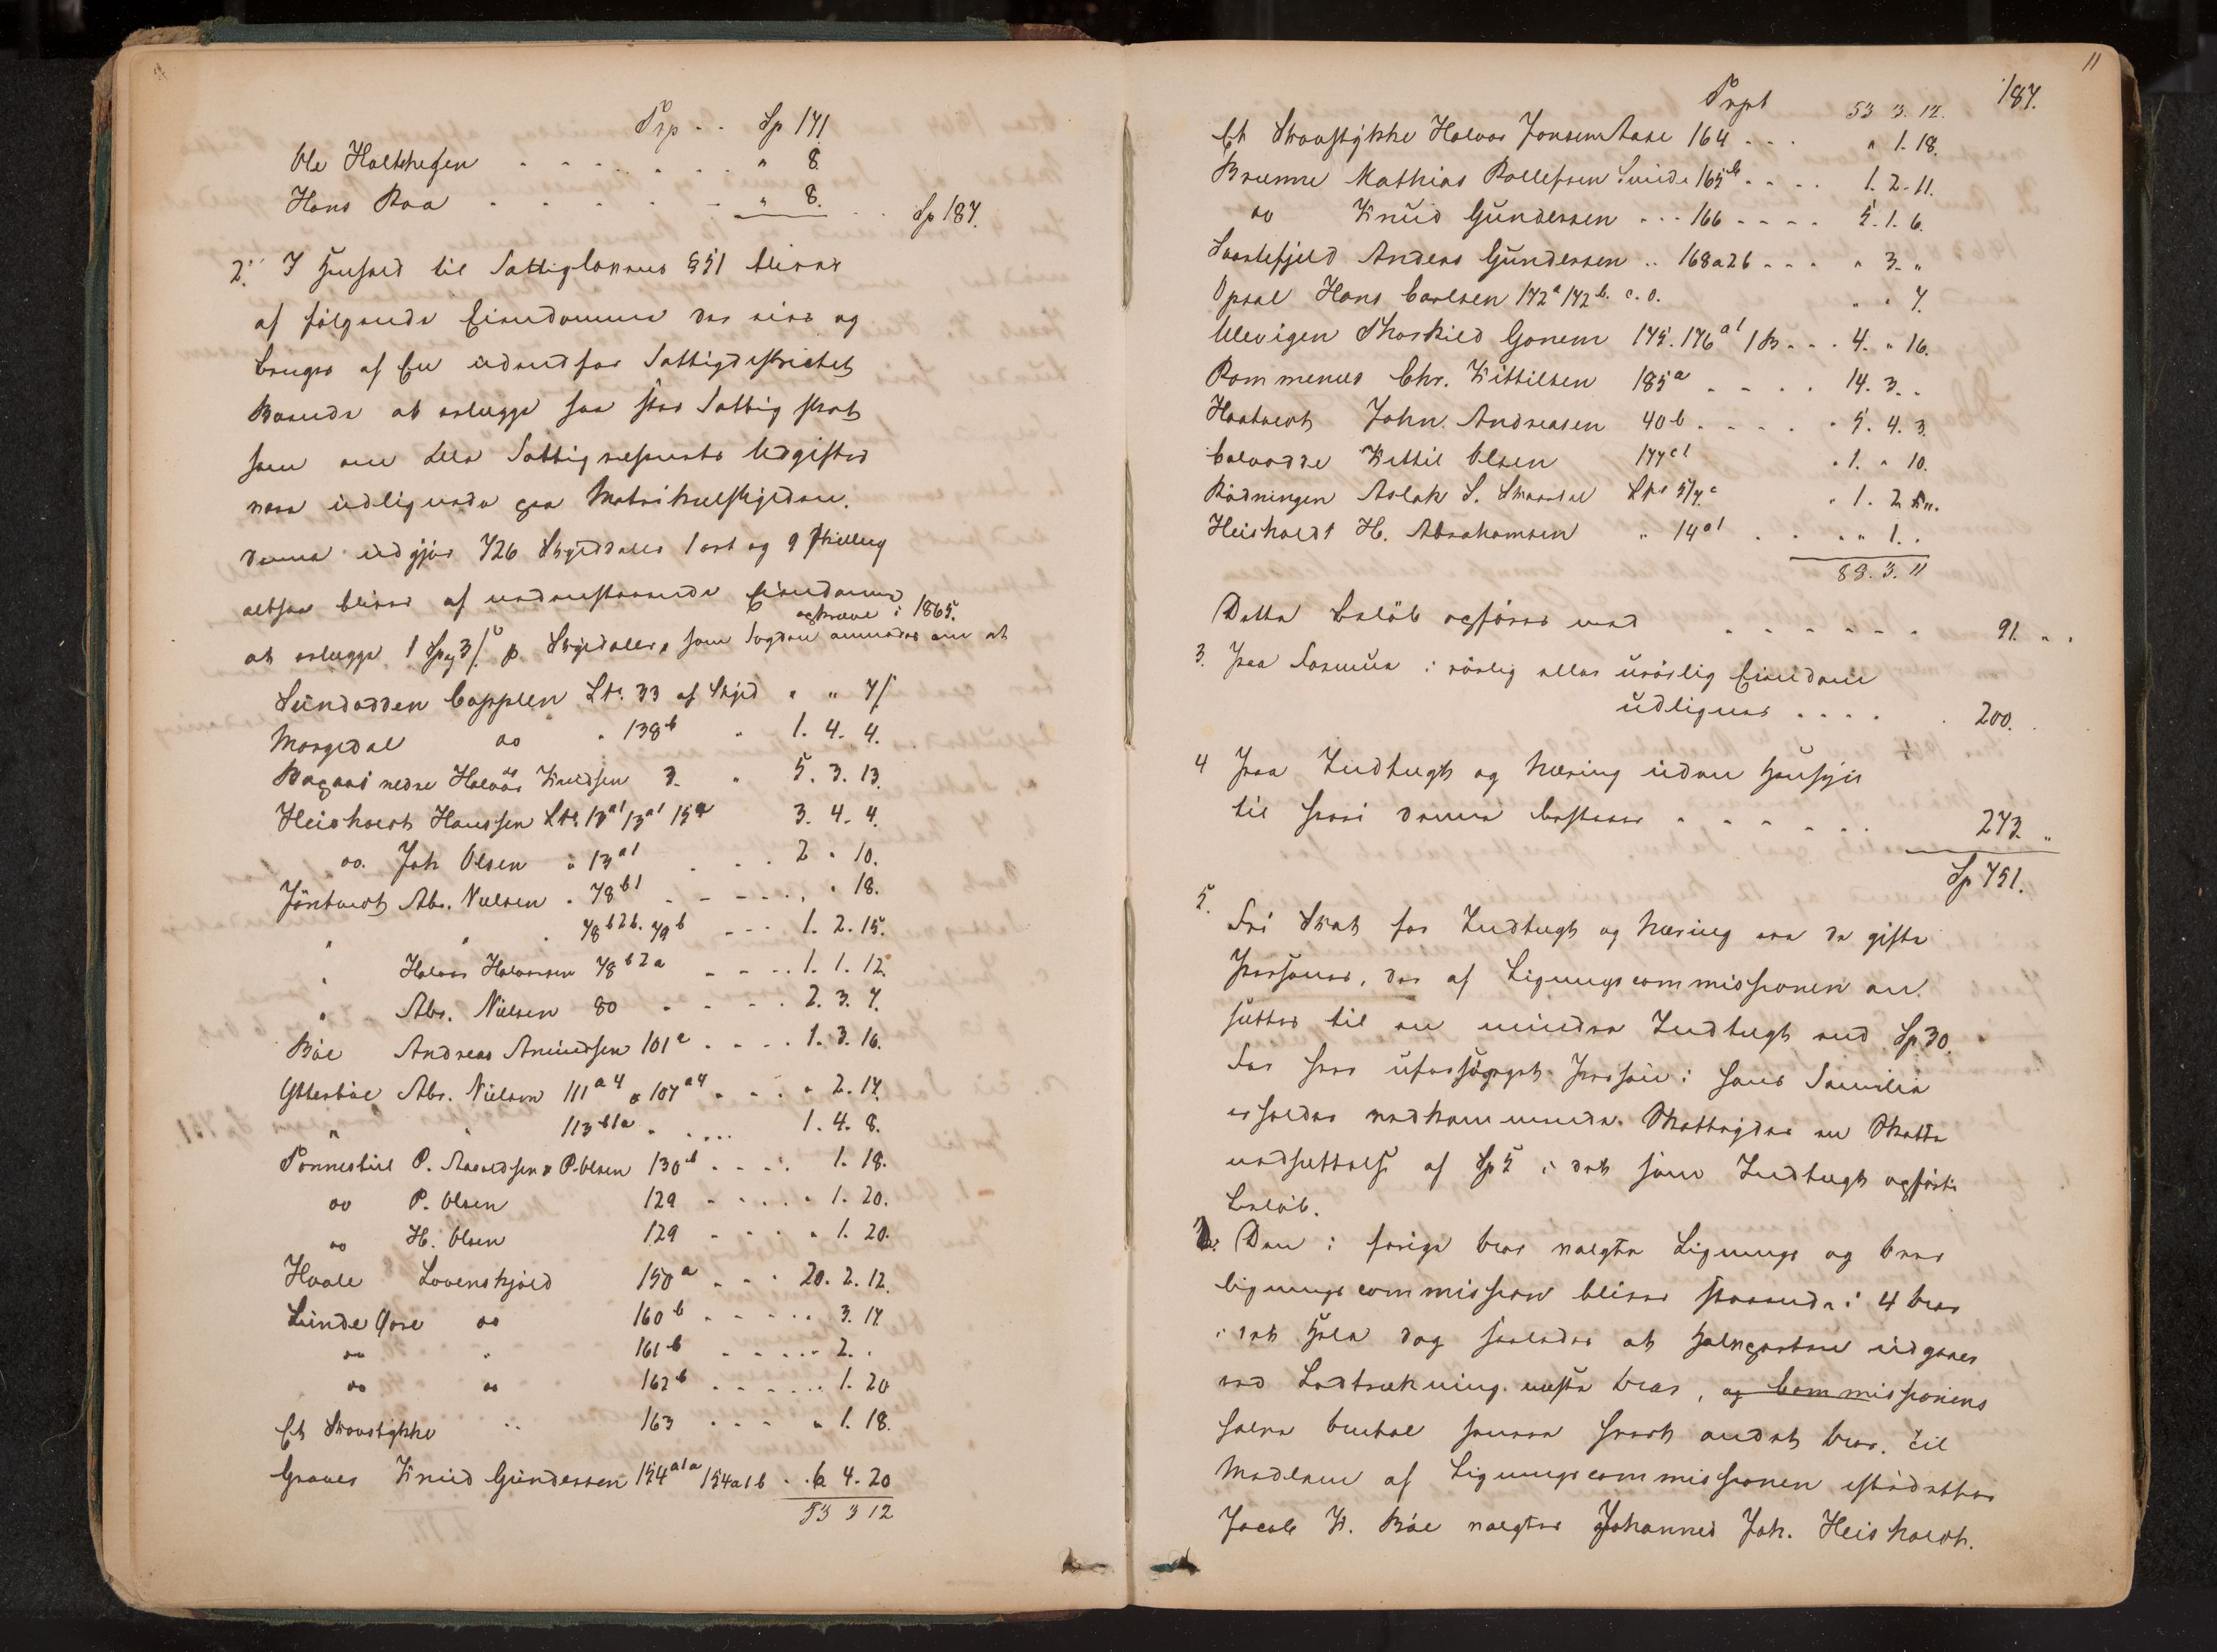 Trp . . Sp 171
Ole Holtshefen . . . . . . . " 8.
Hans Raa . . . . . . " 8. . . Sp 187.
2. I Henhold til Fattiglovens § 51 bliver
af følgende Eiendomme der eies og
bruges af En udenfor Fattigdistrictet
Boende at erlægge saa stor Fattigskat
som om alle Fattigvæsenets Udgifter
vare udlignede paa Matrikulskylden.
Denne udgjør 726 Skylddaler 1 ort og 9 skilling
altsaa bliver af nedenstaaende Eiendomme
opkræve i 1865.
at erlægge 1 Sp 3 s. p Skylddaler, som Fogden anmodes om at
Sundodden Cappelen Lbr. 33 af Skyld " " 7 s
Morgedal do " 138 b " 1. 4. 4.
Bagaas nedre Halvor Knudsen 3. " 5. 3. 13.
Heisholdt Hanssen Lbr. 13 a1 15 a 3. 4. 4.
do. Joh Olsen " 13 a1 . . . 2 " 10.
Jøntvedt Abr. Nielsen . 78 b1 . . . . . " 18.
" " . 78 b2b. 79 b . . . 1. 2. 15.
" Halvor Halvorsen 78 b2a . . . . 1. 1. 12.
" Abr. Nielsen 80 . . . . 2. 3. 7.
Bøe Andreas Amundsen 101 c . . . . 1. 3. 16.
Ytterbøe Abr. Nielsen 111 a4 & 107 a4 . . . " 2. 17.
" " 113 b1a . . . . . 1. 4. 8.
Tønneslie P. Aasoldsen & P. Olsen 130 b . . . . 1. 18.
do P. Olsen 129 . . . . . " 1. 20.
do H. Olsen 129 . . . . " 1. 20.
Hvale Løvenskjold 150 a . . . 20. 2. 12.
Lunde Øvre do 160 b . . . . . . 3. 17
do " 161 b . . . . . 2. .
do do 162 b . . . . . . 1. 20
Et Skovstykke " 163 . . . " 1. 18.
Graver Knud Gundersen 154 a1a 154 a1b . . 6 4. 20
53 3 12
11
Trpt 53 3. 12. 187.
Et Skovstykke Halvor Jonsen Aase 164 . . . " 1. 18.
Brunne Mathias Rollefsen Lunde 165 b . . . . 1. 2. 11.
do Knud Gundersen . . . 166 . . . . 5. 1. 6.
Svartefjeld Anders Gundersen . . 168 a 2 b . . . " 3. "
Opsal Hans Carlsen 172 a 172 b. c. d. " " 7.
Ulevigen Thorkild Gonem 175. 176 a1 1 B . . . 4. " 16.
Rommenes Chr. Kittilsen 185 a . . . . 14. 3. .
Haatvedt John. Andreasen 40 b . . . . . 5. 4. 3.
Kittil Olsen 177 c1 " 1. " 10.
Rødningen Aslak S. Lbr 5/7 c " 1. 2
Heisholdt H. Abrahamsen " 14 a1 . . " " 1. .
88. 3. 11
Dette Beløb opføres med . . . . . . . 91. " "
3. Paa Formue i rørlig eller urørlig Eiendom
udlignes . . . . . 200.
4 Paa Indtægt og Næring uden Hensyn
til hvori denne bestaaer . . . . . . 273. "
Sp 751.
5.
Fri Skat for Indtægt og Næring ere de gifte
Personer, der af Ligningscommissionen an
sættes til en mindre Indtægt end Sp 30.
For hver uforsørget Person i hans Familie
erholder vedkommende Skatteyder en Skatte
nedsættelse af Sp 5 i det som Indtægt opførte
Beløb.
Den i forige Aar valgte Lignings og Over
ligningscommission bliver staaende i 4 Aar
i det Hele dog saaledes at Halvparten udgaaer
ved Lodtrækning næste Aar, og Commissionens
halve Antal senere hvert andet Aar. Til
Medlem af Ligningscommissionen istedetfor
Jacob K. Bøe valgtes Johannes Joh. Heisholdt.